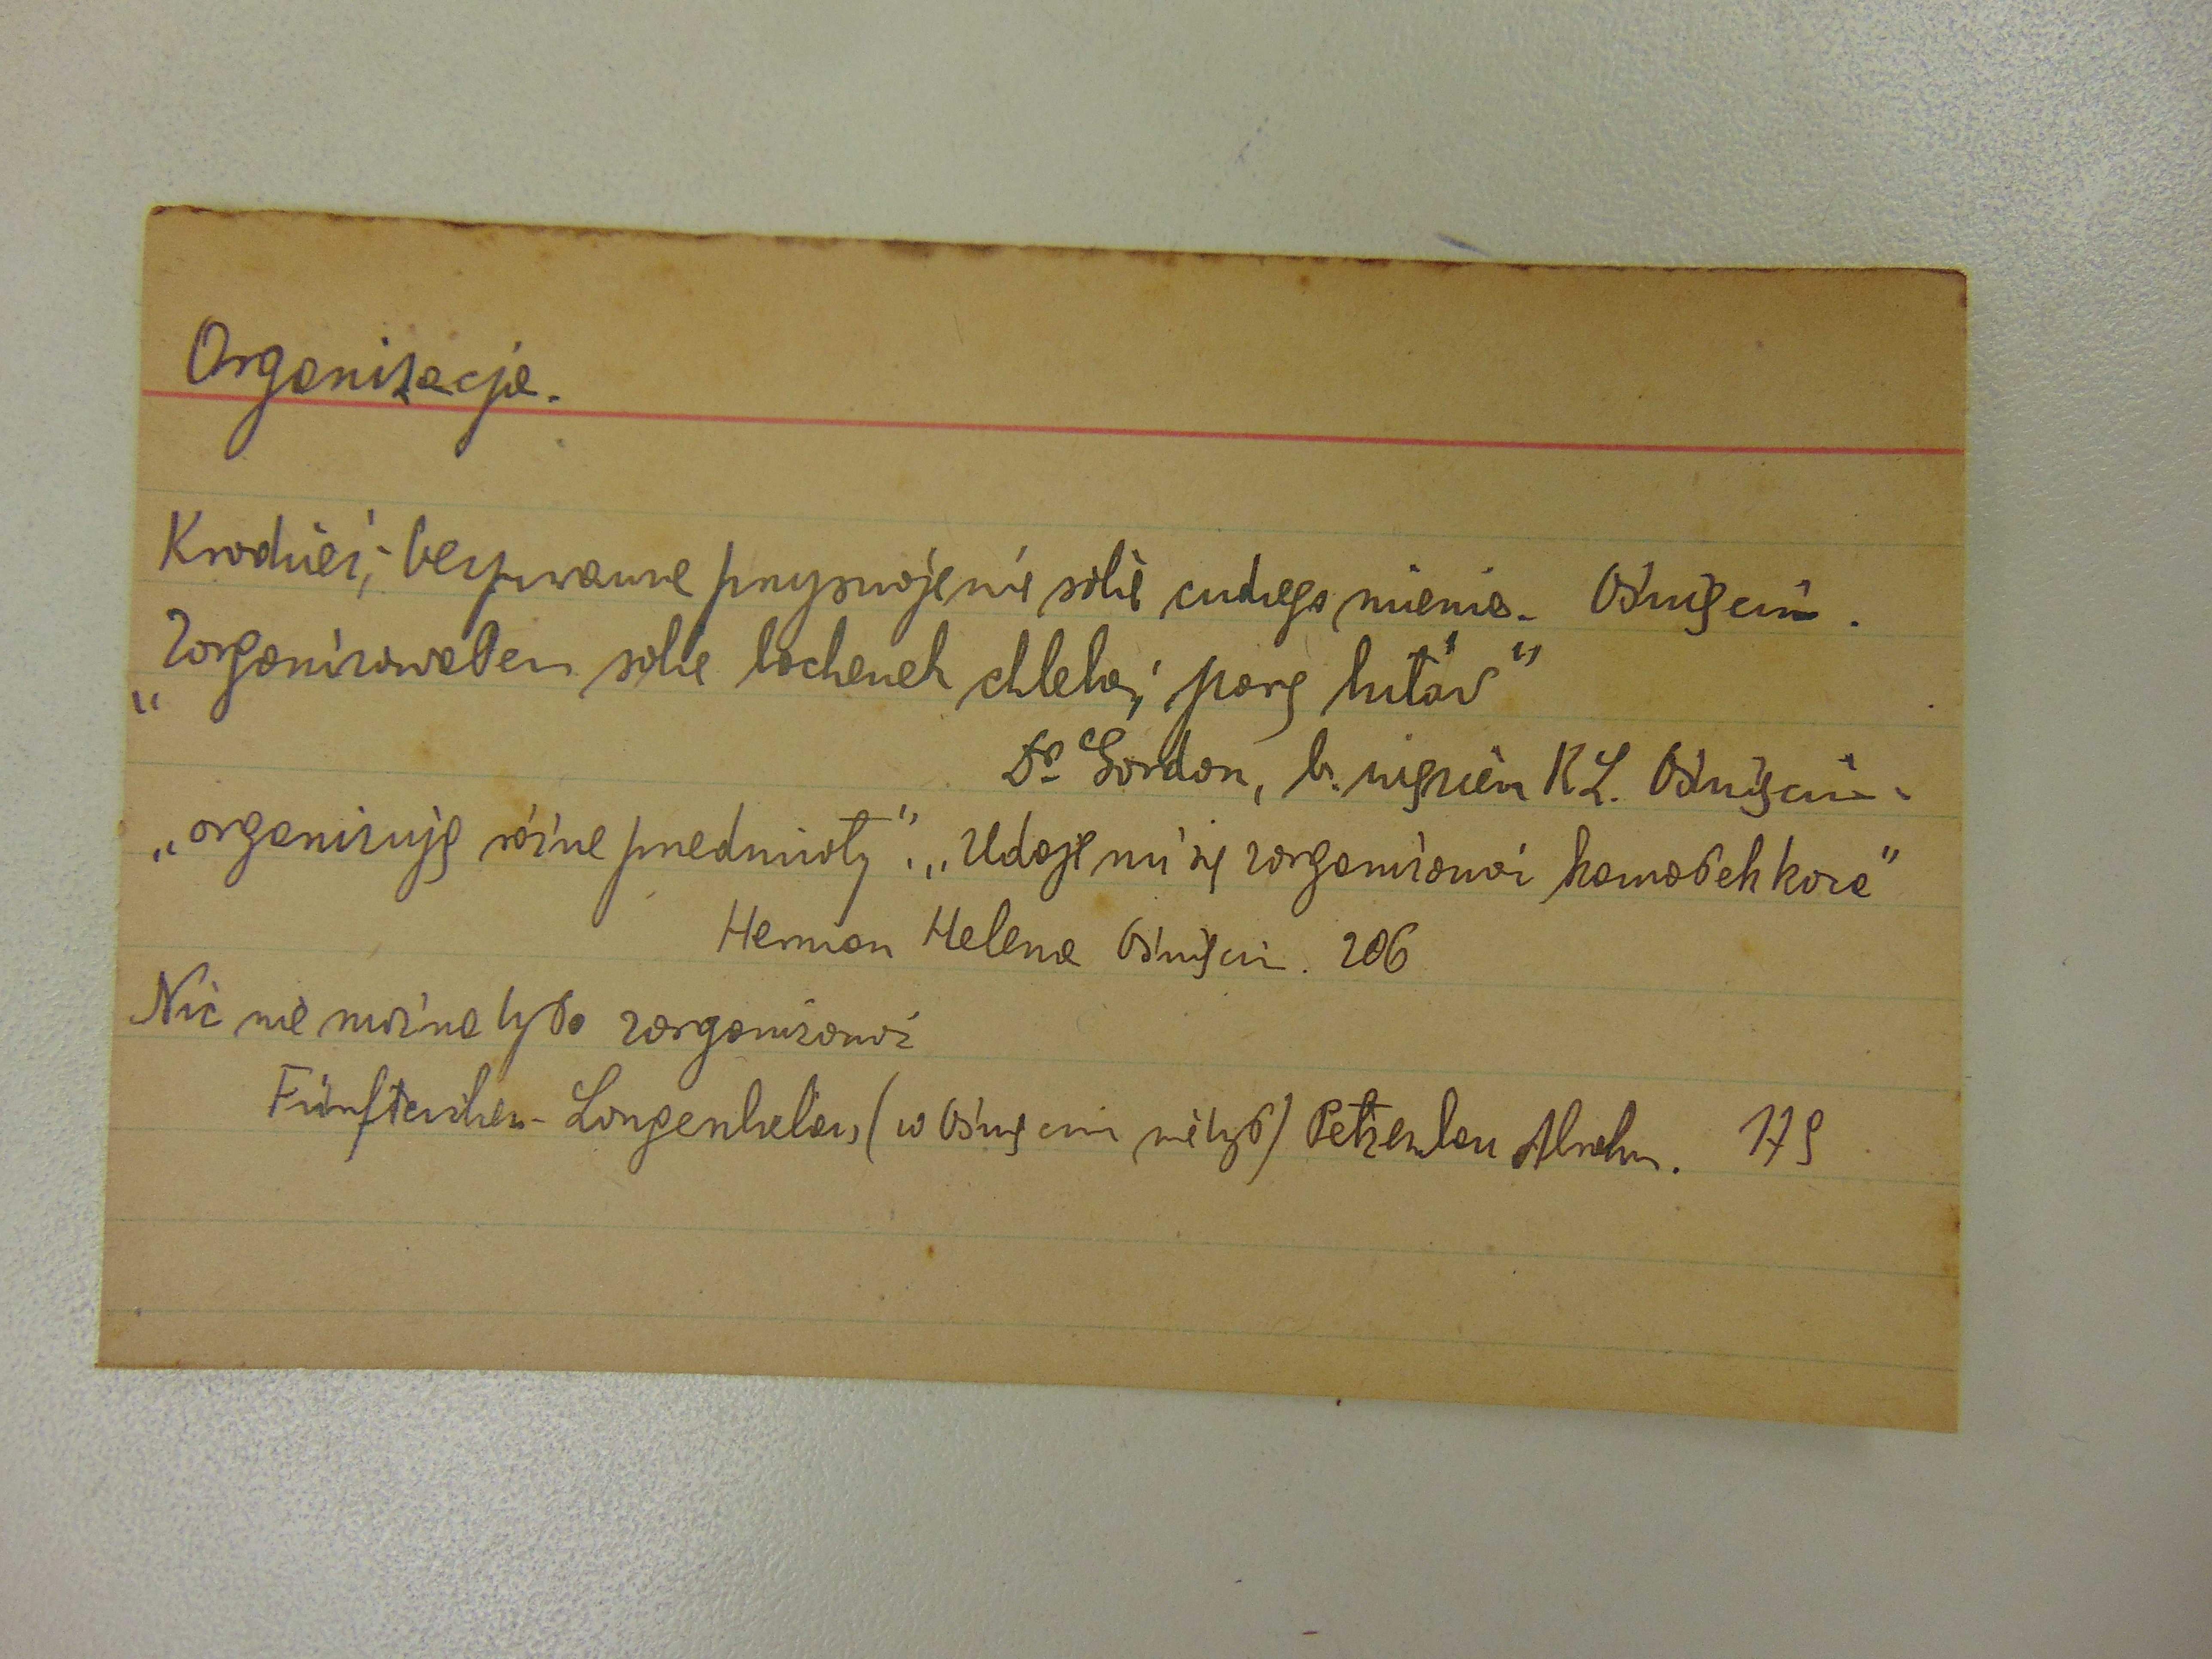 Organizacja.
Kradzież, - bezprawne przyswojenie sobie cudzego mienia. Oświęcim.
"Zorganizowałem sobie bochenek chleba, parę butów"
Dr Gordon, b. więzień KL. Oświęcim.
„organizuję różne przedmioty". „Udaje mi się zorganizować kawałek koca"
Herman Helena Oświęcim. 206
Nic nie można było zorganizować
Fünfteichen - Langenbielau, (w Oświęcimiu nie był) Abrahm. 179